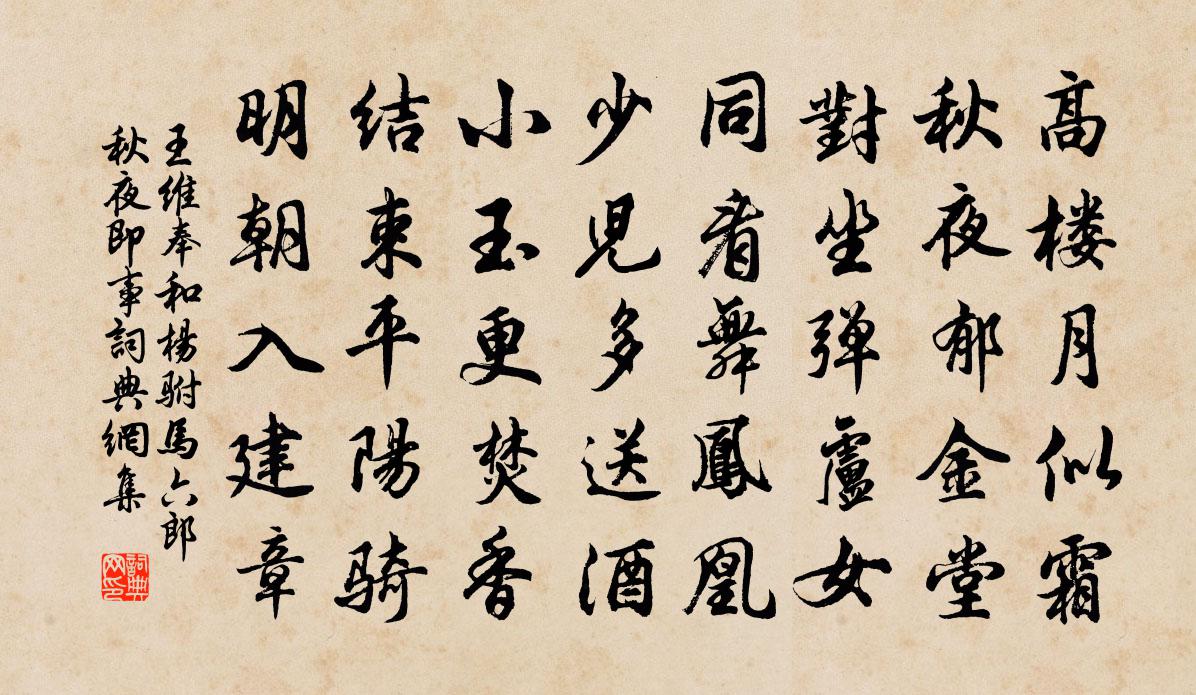 高楼月似霜
秋夜郁金堂
對坐弹盧女
同看舞鳳凰
少児多送酒
小玉更焚香
结束平陽骑
明朝入建章
王維奉和楊駙馬六郎
秋夜即事詞典網集
詞典
网印